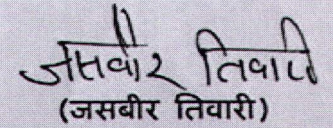 जसवीर तिवारी
(जसबीर तिवारी)